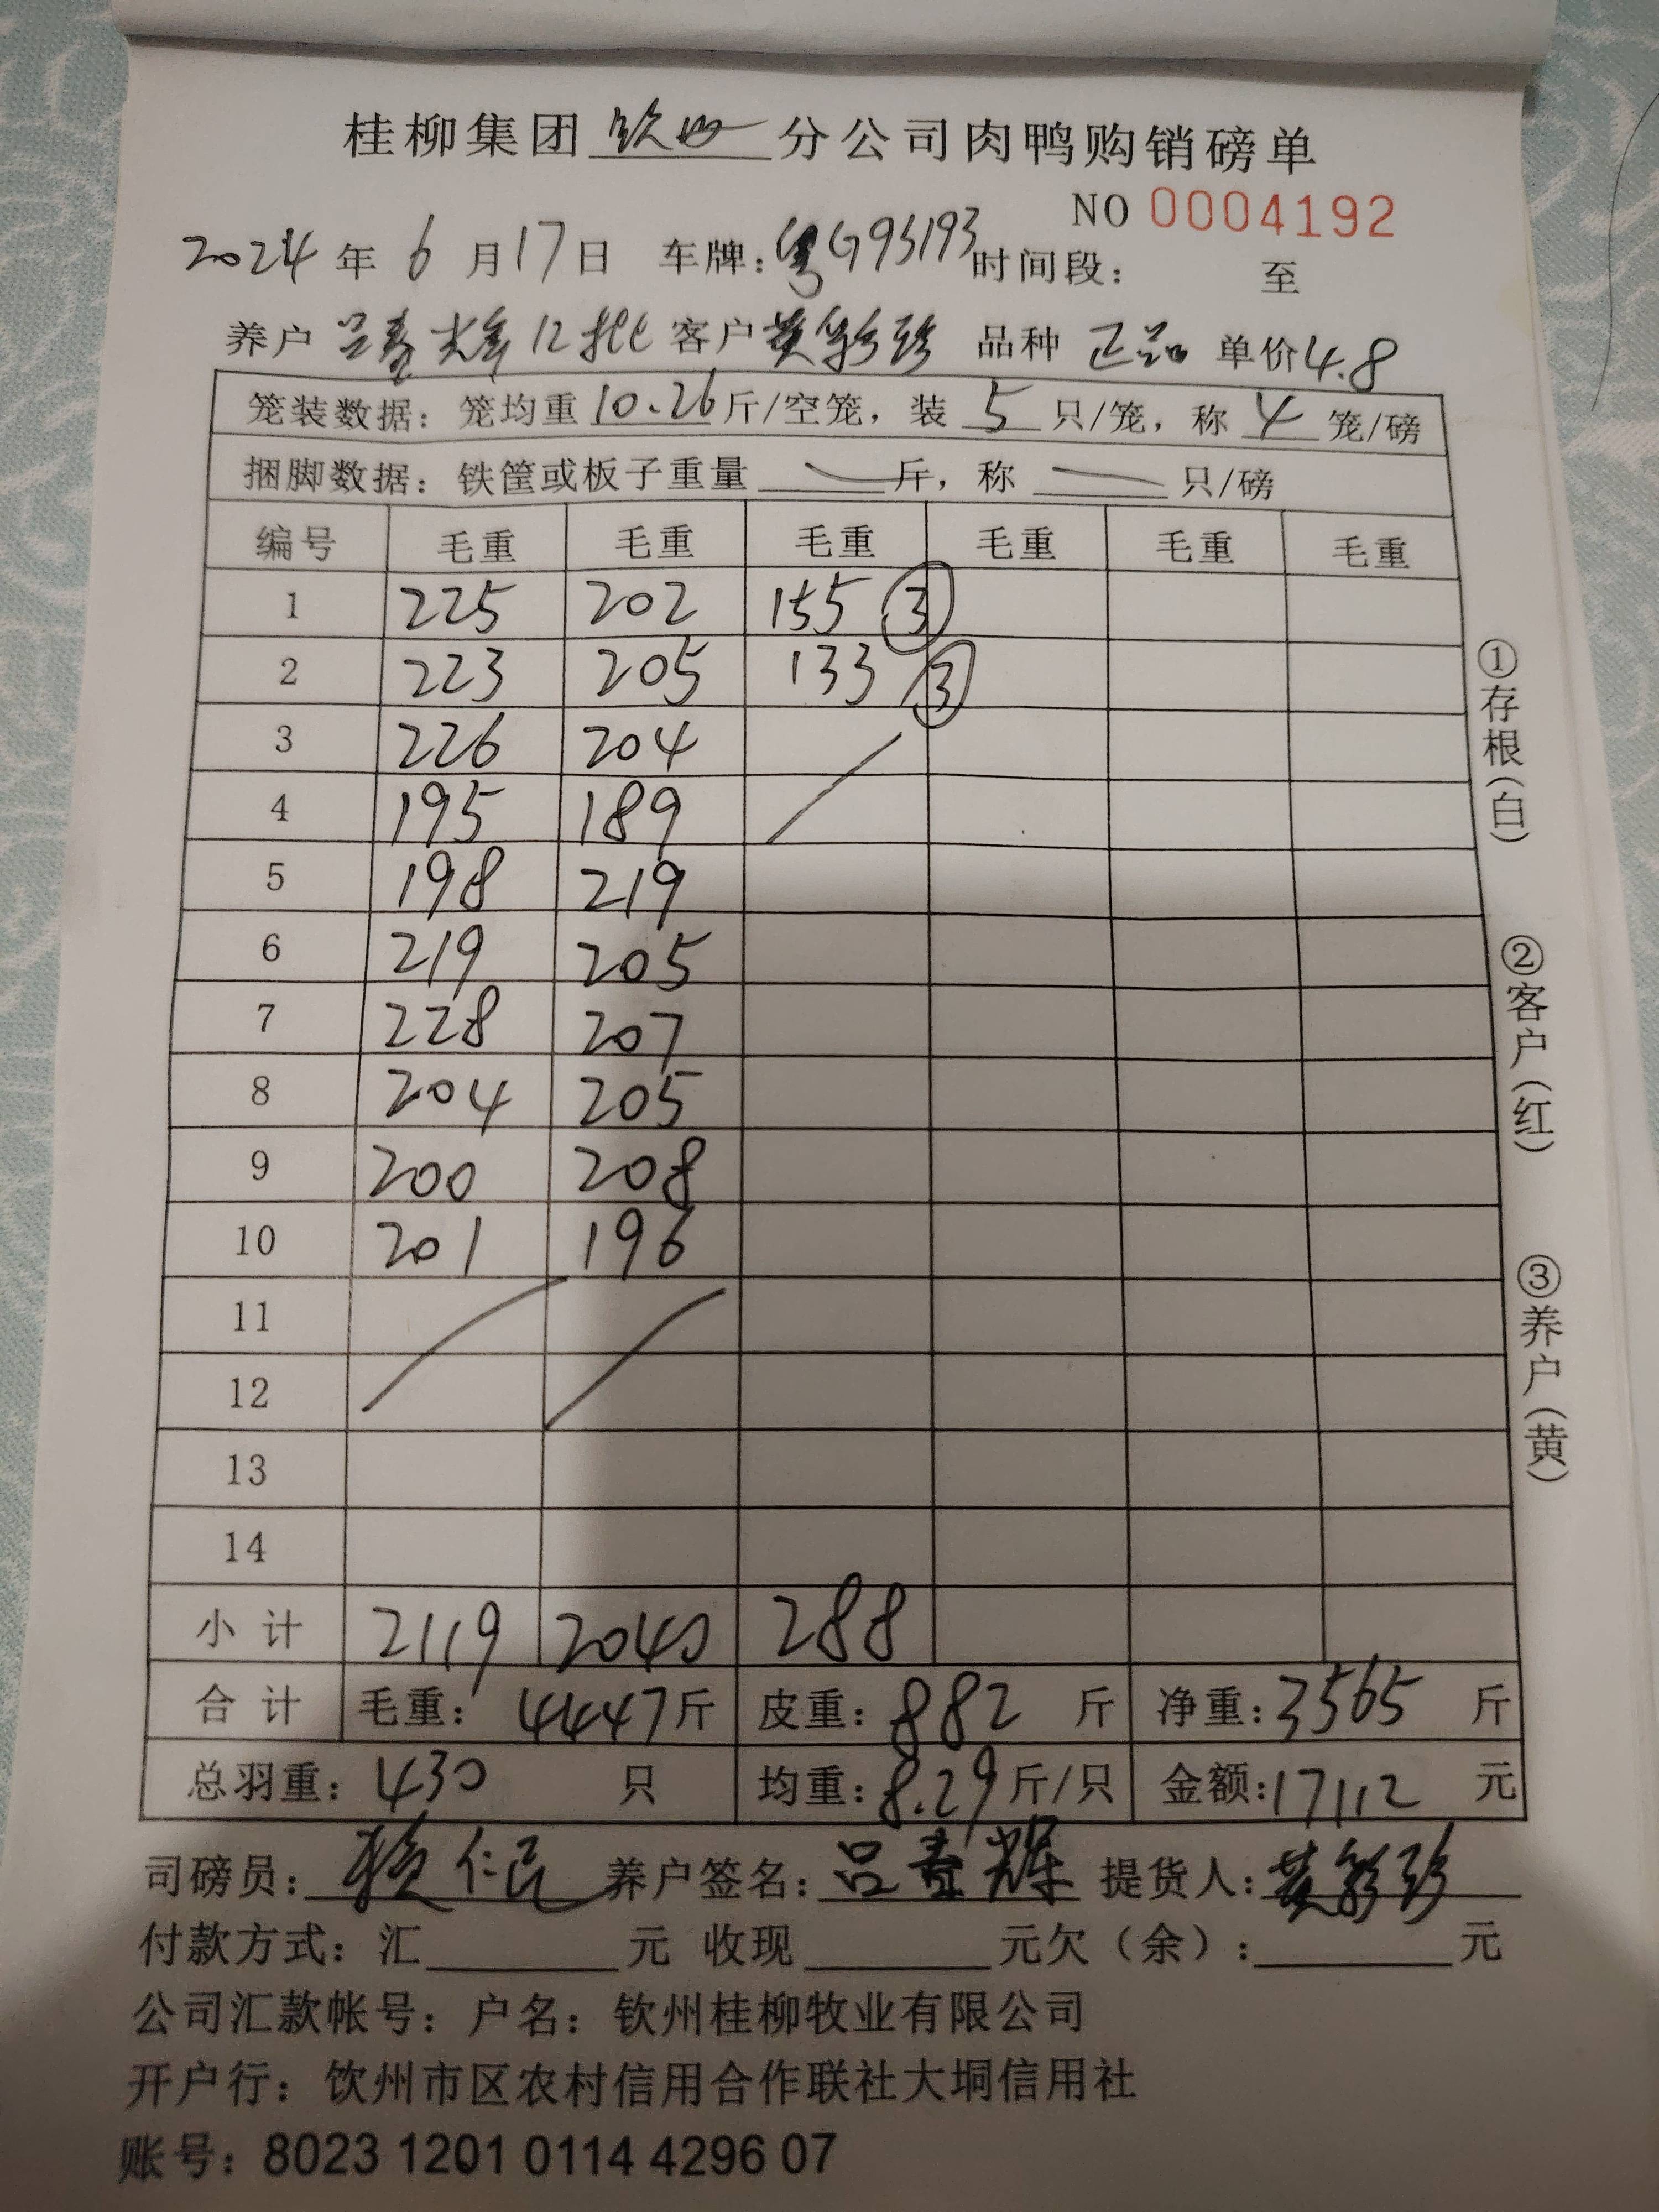 桂柳集团钦州分公司肉鸭购销磅单
NO 0004192
2024年6月17日 车牌:粤G93193 时间段: 至
养户 吕春辉12批 客户 黄彩珍 品种 正品 单价4.8
笼装数据: 笼均重10.26斤/空笼, 装5只/笼, 称4笼/磅
捆脚数据: 铁筐或板子重量 斤, 称 只/磅
编号 毛重 毛重 毛重 毛重 毛重 毛重
1 225 202 155 ③
2 223 205 133 ③
3 226 204
4 195 189
5 198 219
6 219 205
7 228 207
8 204 205
9 200 208
10 201 196
11
12
13
14
小计 2119 2040 288
合计 毛重: 4447斤 皮重: 882斤 净重: 3565斤
总羽重: 430只 均重: 8.29斤/只 金额: 17112元
司磅员: 仁民 养户签名: 吕春辉 提货人: 黄彩珍
付款方式: 汇 元 收现 元欠(余): 元
公司汇款帐号: 户名: 钦州桂柳牧业有限公司
开户行: 饮州市区农村信用合作联社大垌信用社
账号: 8023 1201 0114 4296 07
①存根(白)
②客户(红)
③养户(黄)